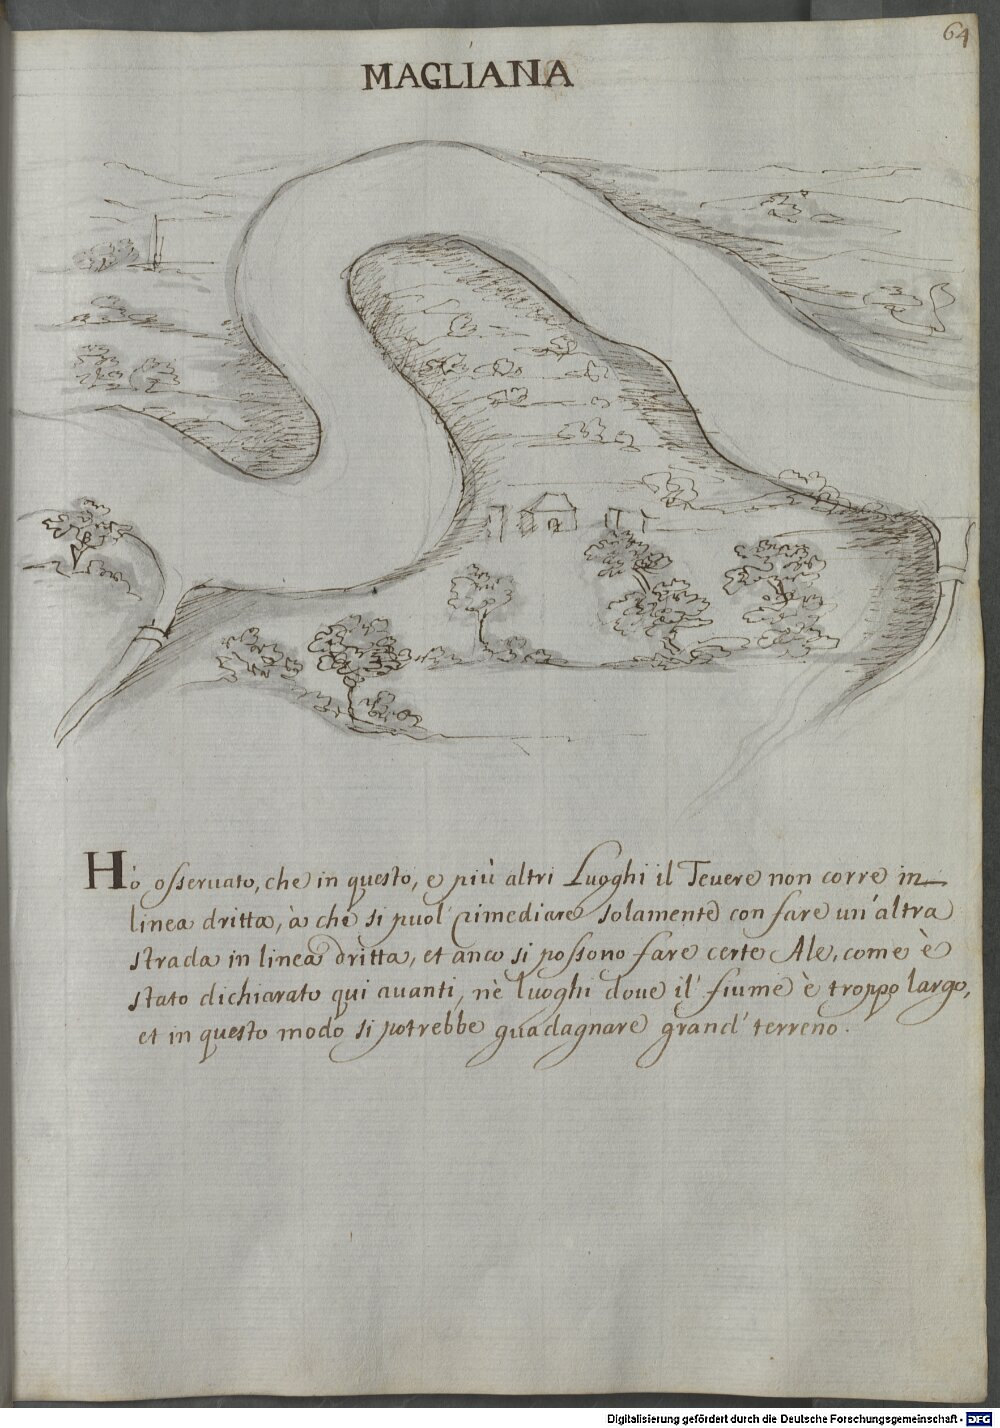 64
MAGLIANA
Hò osseruato, che in questo, e più altri Luoghi il Teuere non corre in
linea dritta, à che si puol' rimediare solamente con fare un'altra
strada in linea dritta, et anco si possono fare certe Ale, come è
stato dichiarato qui auanti, nè luoghi doue il' fiume è troppo largo,
et in questo modo si potrebbe guadagnare grand' terreno.
Digitalisierung gefördert durch die Deutsche Forschungsgemeinschaft - DFG